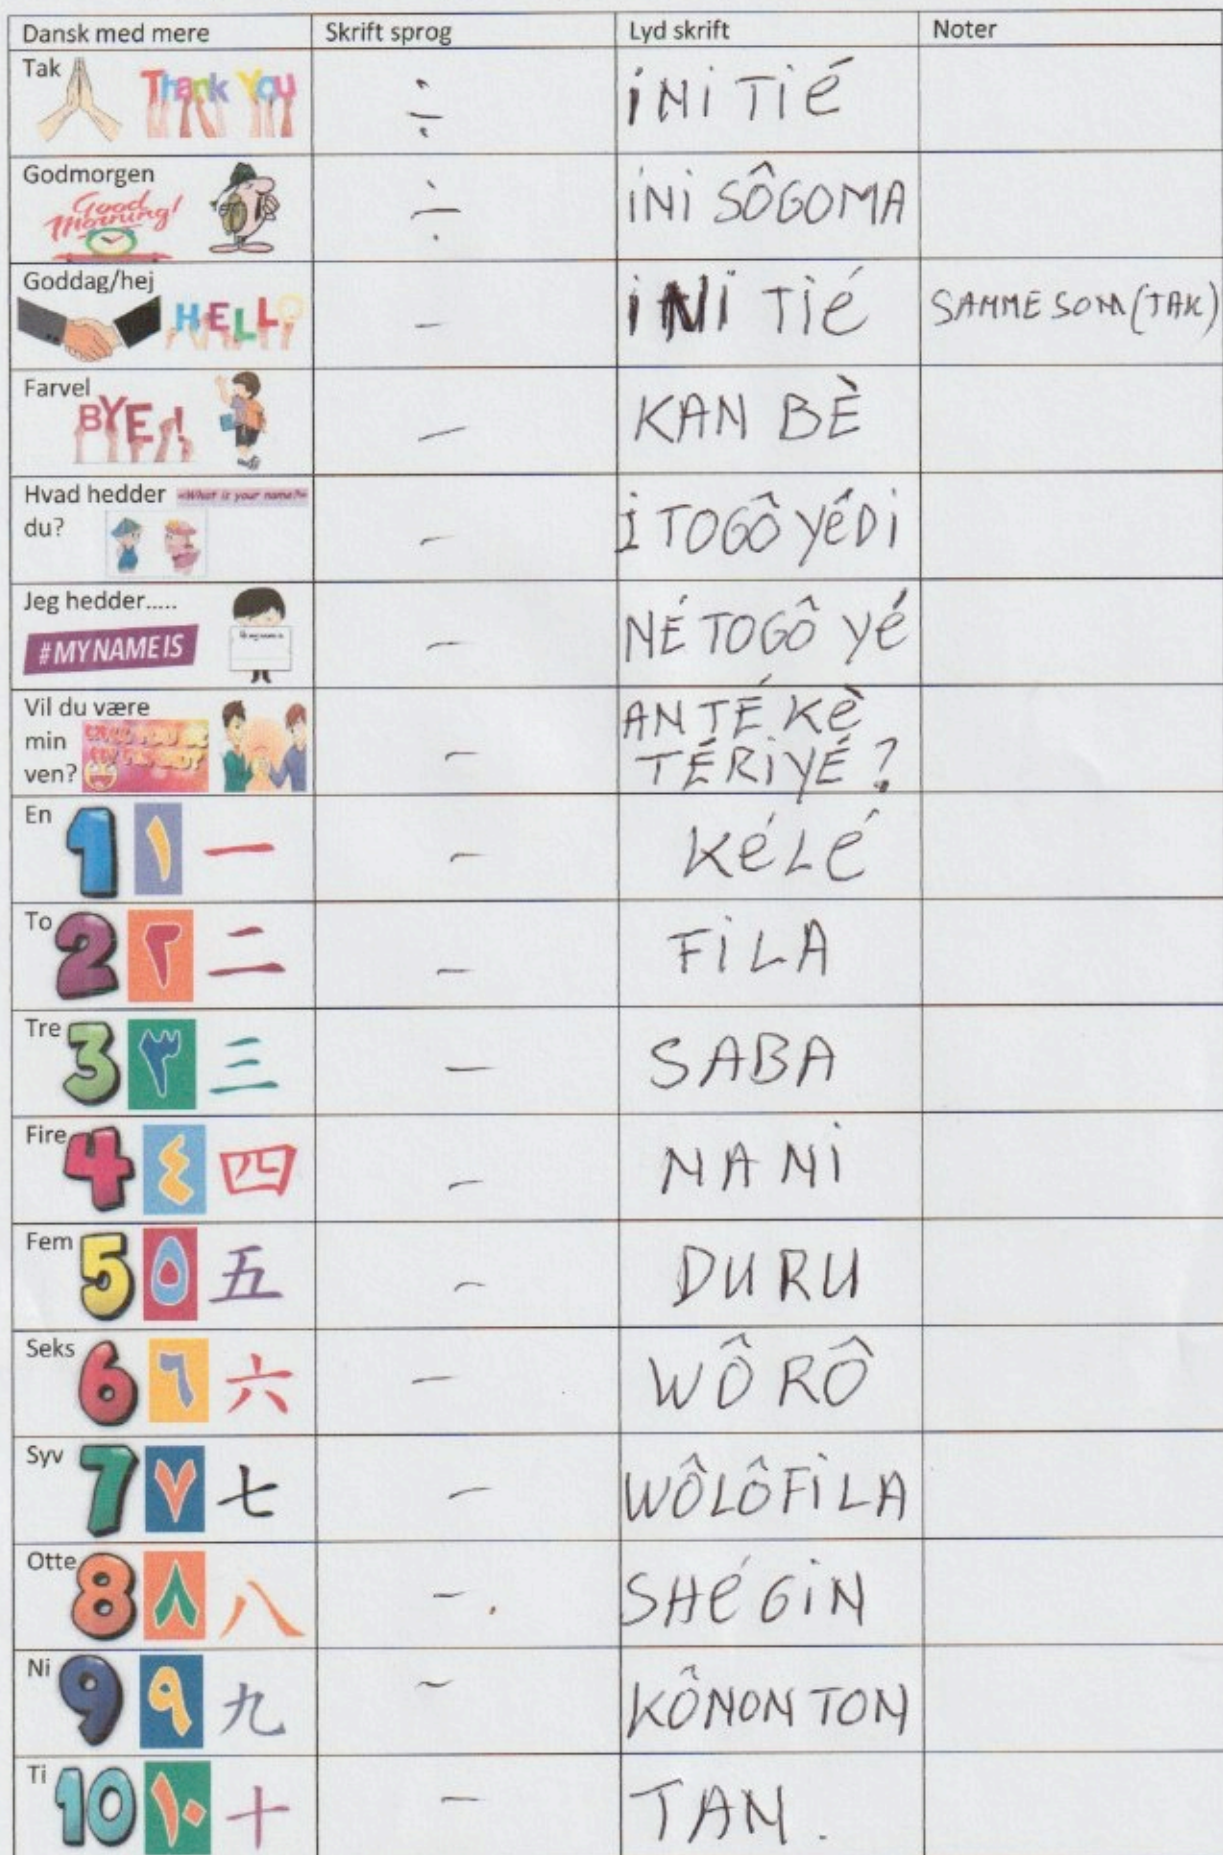 Dansk med mere Skrift sprog Lyd skrift Noter
Tak Thank You ÷ iNi Tié
Godmorgen Good Morning! ÷ iNi SÔGOMA
Goddag/hej HELLO – iNi Tié SAMME SOM (TAK)
Farvel BYE! – KAN BÈ
Hvad hedder «What is your name?» – I TOGÔ YéDi
du?
Jeg hedder..... #MY NAME IS – NÉ TOGÔ Yé
Vil du være – AN TÉ Kè
min TÉRiYÉ?
ven?
En 1 ١ 一 – KéLé
To 2 ٢ 二 – FiLA
Tre 3 ٣ 三 – SABA
Fire 4 ٤ 四 – NANi
Fem 5 ٥ 五 – DURU
Seks 6 ٦ 六 – WÔRÔ
Syv 7 ٧ 七 – WÔLÔFiLA
Otte 8 ٨ 八 – SHéGiN
Ni 9 ٩ 九 ~ KÔNONTON
Ti 10 ١٠ 十 – TAN.